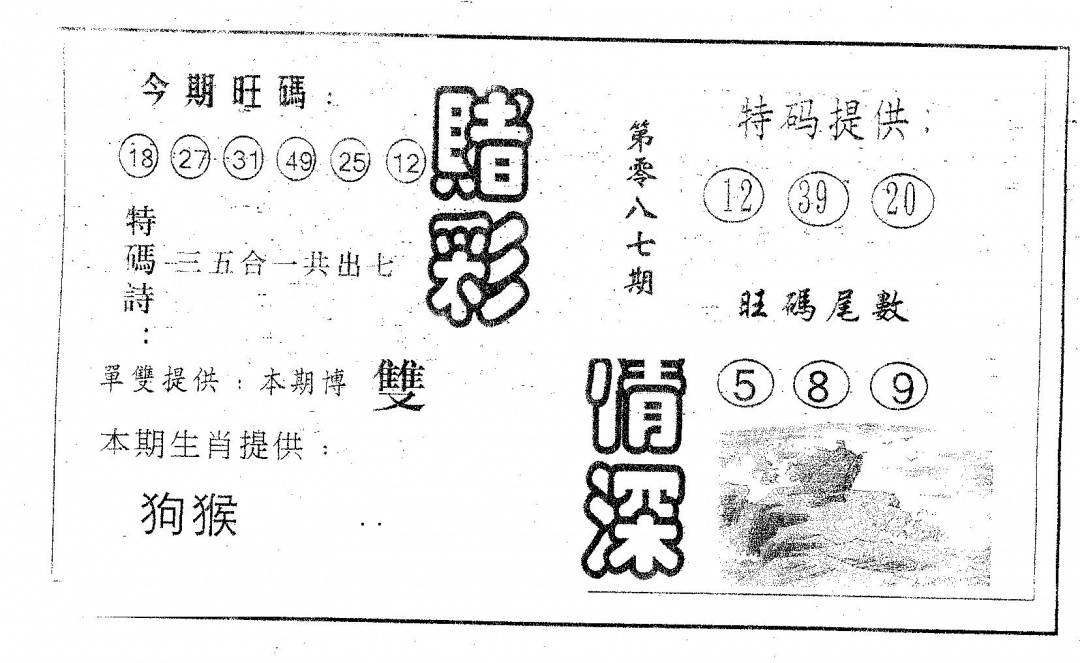 今期旺碼：
18 27 31 49 25 12
特碼詩：
一三五合一共出七
單雙提供：本期博 雙
本期生肖提供：
狗猴
賭彩
情深
第零八七期
特码提供：
12 39 20
旺碼尾數
5 8 9